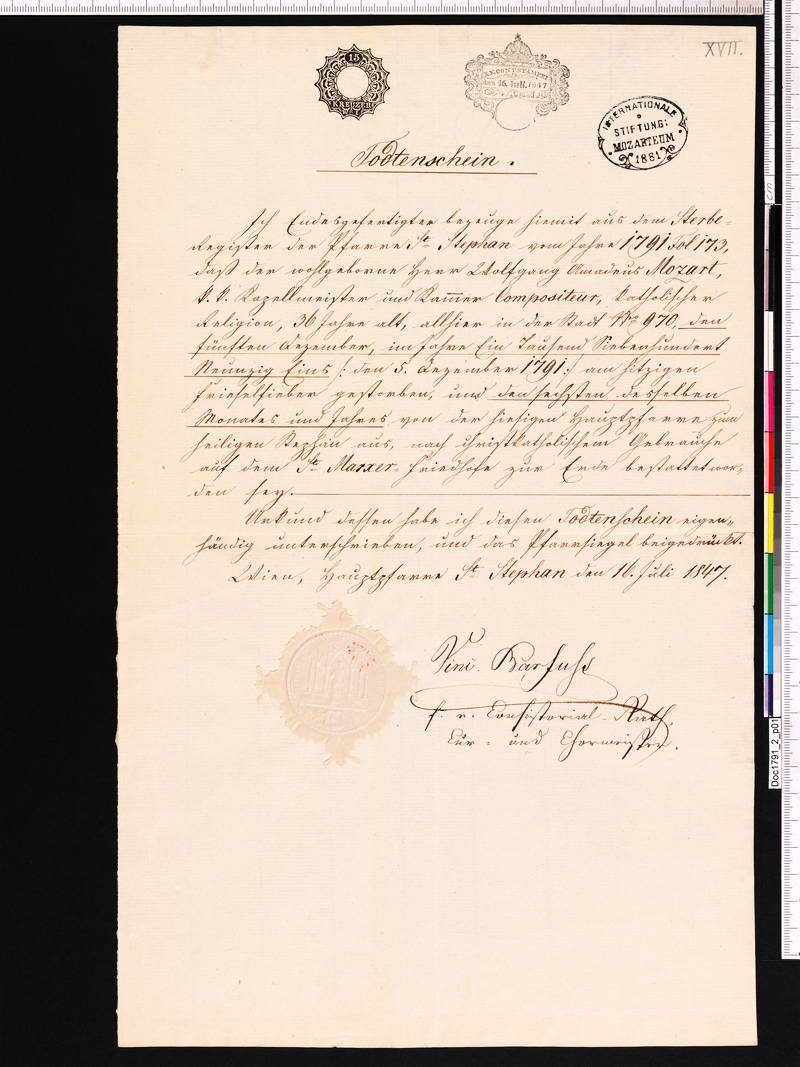 XVII.
15
KREUZER
K.K. CONT. STÄMPEL
16. Juli. 1847
INTERNATIONALE
STIFTUNG:
MOZARTEUM
1881
Todtenschein.
Ich Endesgefertigter bezeuge hiemit aus dem Sterbe-
Register der Pfarre St. Stephan vom Jahre 1791 Fol 173,
daß der wohlgeborne Herr Wolfgang Amadeus Mozart,
k. k. Kapellmeister und Kam̄er Compositeur, katholischer
Religion, 36 Jahre alt, allhier in der Stadt Nro 970, den
fünften Dezember, im Jahre Ein Tausend Siebenhundert
Neunzig Eins /: den 5. Dezember 1791 :/ am hitzigen
Frieselfieber gestorben, und den sechsten desselben
Monates und Jahres von der hiesigen Hauptpfarre zum
heiligen Stephan aus, nach christkatholischem Gebrauche
auf dem St. Marxer-Friedhofe zur Erde bestattet wor-
den sey.
Urkund dessen habe ich diesen Todtenschein eigen-
händig unterschrieben, und das Pfarrsiegel beigedrückt.
Wien, Hauptpfarre St. Stephan den 16. Juli 1847.
Vinc. Barfuhs
f. e. Consistorial-Rath,
Cur- und Chormeister.
cm
Doc1791_2_p01